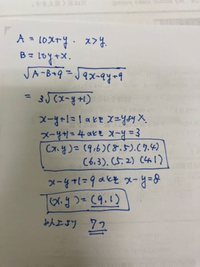 A = 10x+y. x>y.
B = 10y+x.
√A-B+9 = √9x-9y+9
= 3√(x-y+1)
x-y+1=1のとき x=yより×
x-y+1=4のとき x-y=3
(x,y) = (9,6) (8,5) (7,4)
(6,3), (5,2) (4,1)
x-y+1=9のとき x-y=8
(x,y) = (9,1)
以上より 7つ